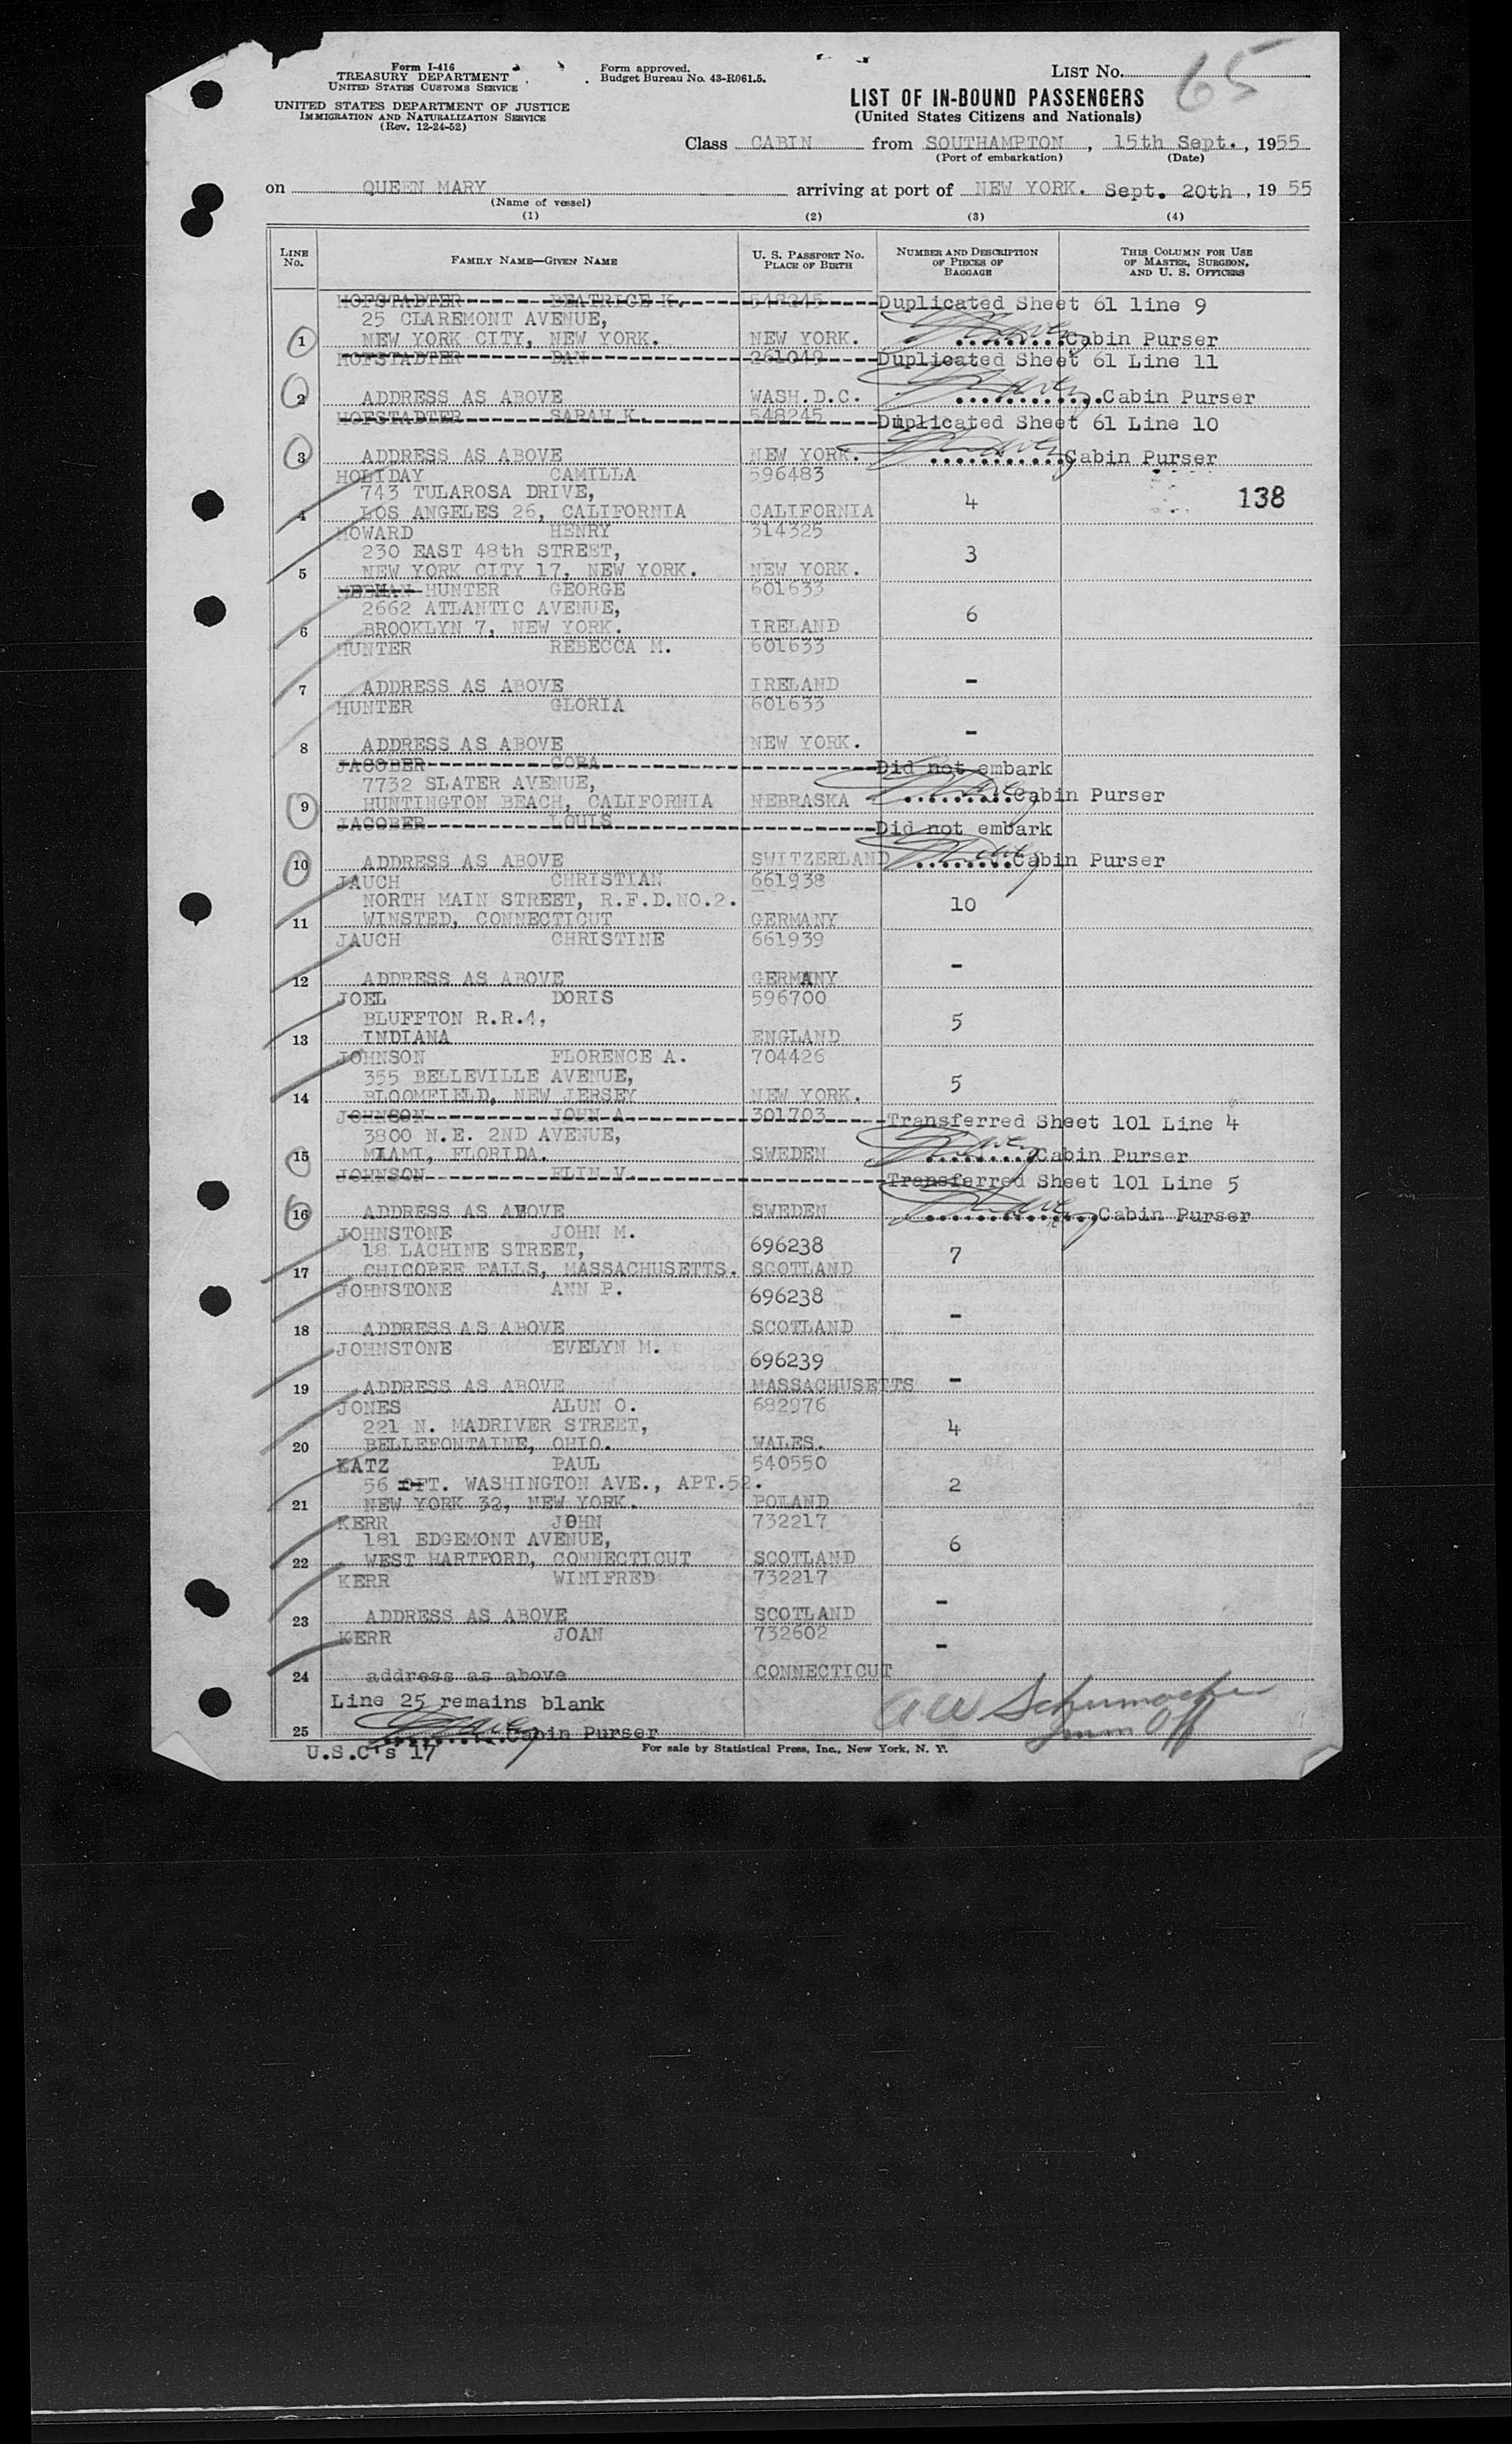 Form I-416
TREASURY DEPARTMENT
UNITED STATES CUSTOMS SERVICE
UNITED STATES DEPARTMENT OF JUSTICE
IMMIGRATION AND NATURALIZATION SERVICE
(Rev. 12-24-52)
Form approved.
Budget Bureau No. 43-R061.5.
LIST No. 65
LIST OF IN-BOUND PASSENGERS
(United States Citizens and Nationals)
Class CABIN from SOUTHAMPTON, 15th Sept., 1955
(Port of embarkation) (Date)
on QUEEN MARY arriving at port of NEW YORK. Sept. 20th, 1955
(Name of vessel)
(1) (2) (3) (4)
LINE No. FAMILY NAME—GIVEN NAME U. S. PASSPORT No. PLACE OF BIRTH NUMBER AND DESCRIPTION OF PIECES OF BAGGAGE THIS COLUMN FOR USE OF MASTER, SURGEON, AND U. S. OFFICERS
HOFSTADTER BEATRICE K. 548245 Duplicated Sheet 61 line 9
25 CLAREMONT AVENUE,
1 NEW YORK CITY, NEW YORK. NEW YORK. Cabin Purser
HOFSTADTER DAN 261049 Duplicated Sheet 61 Line 11
2 ADDRESS AS ABOVE WASH.D.C. Cabin Purser
HOFSTADTER SARAH K. 548245 Duplicated Sheet 61 Line 10
3 ADDRESS AS ABOVE NEW YORK. Cabin Purser
HOLIDAY CAMILLA 596483
743 TULAROSA DRIVE, 4 138
4 LOS ANGELES 26, CALIFORNIA CALIFORNIA
HOWARD HENRY 314325
230 EAST 48th STREET, 3
5 NEW YORK CITY 17, NEW YORK. NEW YORK.
HUNTER GEORGE 601633
2662 ATLANTIC AVENUE, 6
6 BROOKLYN 7, NEW YORK. IRELAND
HUNTER REBECCA M. 601633
7 ADDRESS AS ABOVE IRELAND -
HUNTER GLORIA 601633
8 ADDRESS AS ABOVE NEW YORK. -
JACOBER CORA Did not embark
7732 SLATER AVENUE,
9 HUNTINGTON BEACH, CALIFORNIA NEBRASKA Cabin Purser
JACOBER LOUIS Did not embark
10 ADDRESS AS ABOVE SWITZERLAND Cabin Purser
JAUCH CHRISTIAN 661938
NORTH MAIN STREET, R.F.D.NO.2. 10
11 WINSTED, CONNECTICUT GERMANY
JAUCH CHRISTINE 661939
12 ADDRESS AS ABOVE GERMANY -
JOEL DORIS 596700
BLUFFTON R.R.4, 5
13 INDIANA ENGLAND
JOHNSON FLORENCE A. 704426
355 BELLEVILLE AVENUE, 5
14 BLOOMFIELD, NEW JERSEY NEW YORK.
JOHNSON JOHN A 301703 Transferred Sheet 101 Line 4
3800 N.E. 2ND AVENUE,
15 MIAMI, FLORIDA. SWEDEN Cabin Purser
JOHNSON ELIN V. Transferred Sheet 101 Line 5
16 ADDRESS AS ABOVE SWEDEN Cabin Purser
JOHNSTONE JOHN M. 696238
18 LACHINE STREET, 7
17 CHICOPEE FALLS, MASSACHUSETTS. SCOTLAND
JOHNSTONE ANN P. 696238
18 ADDRESS AS ABOVE SCOTLAND -
JOHNSTONE EVELYN M. 696239
19 ADDRESS AS ABOVE MASSACHUSETTS -
JONES ALUN O. 682976
221 N. MADRIVER STREET, 4
20 BELLEFONTAINE, OHIO. WALES.
KATZ PAUL 540550
56 FT. WASHINGTON AVE., APT.52. 2
21 NEW YORK 32, NEW YORK. POLAND
KERR JOHN 732217
181 EDGEMONT AVENUE, 6
22 WEST HARTFORD, CONNECTICUT SCOTLAND
KERR WINIFRED 732217
23 ADDRESS AS ABOVE SCOTLAND -
KERR JOAN 732602 -
24 address as above CONNECTICUT
Line 25 remains blank AW Schumacher
25 Cabin Purser Imm Off
U.S.C's 17 For sale by Statistical Press, Inc., New York, N. Y.